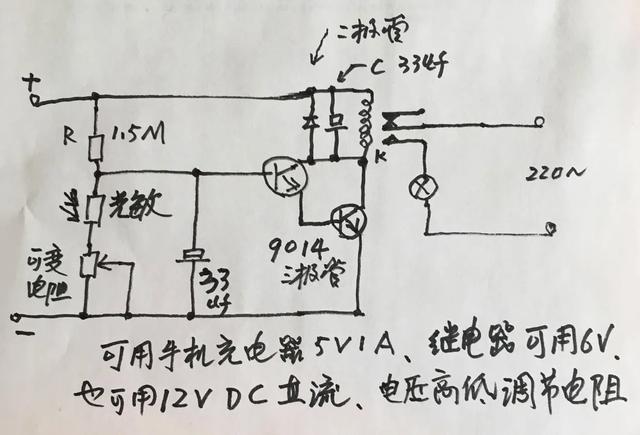 二极管
C 33uf
+
R 1.5M
光敏
K
220~
可变
电阻
33
uf
9014
三极管
-
可用手机充电器5V1A、继电器可用6V、
也可用12V DC直流、电压高低调节电阻